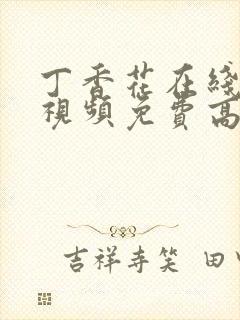 丁香花在綫
視頻免費高
吉祥寺笑 田